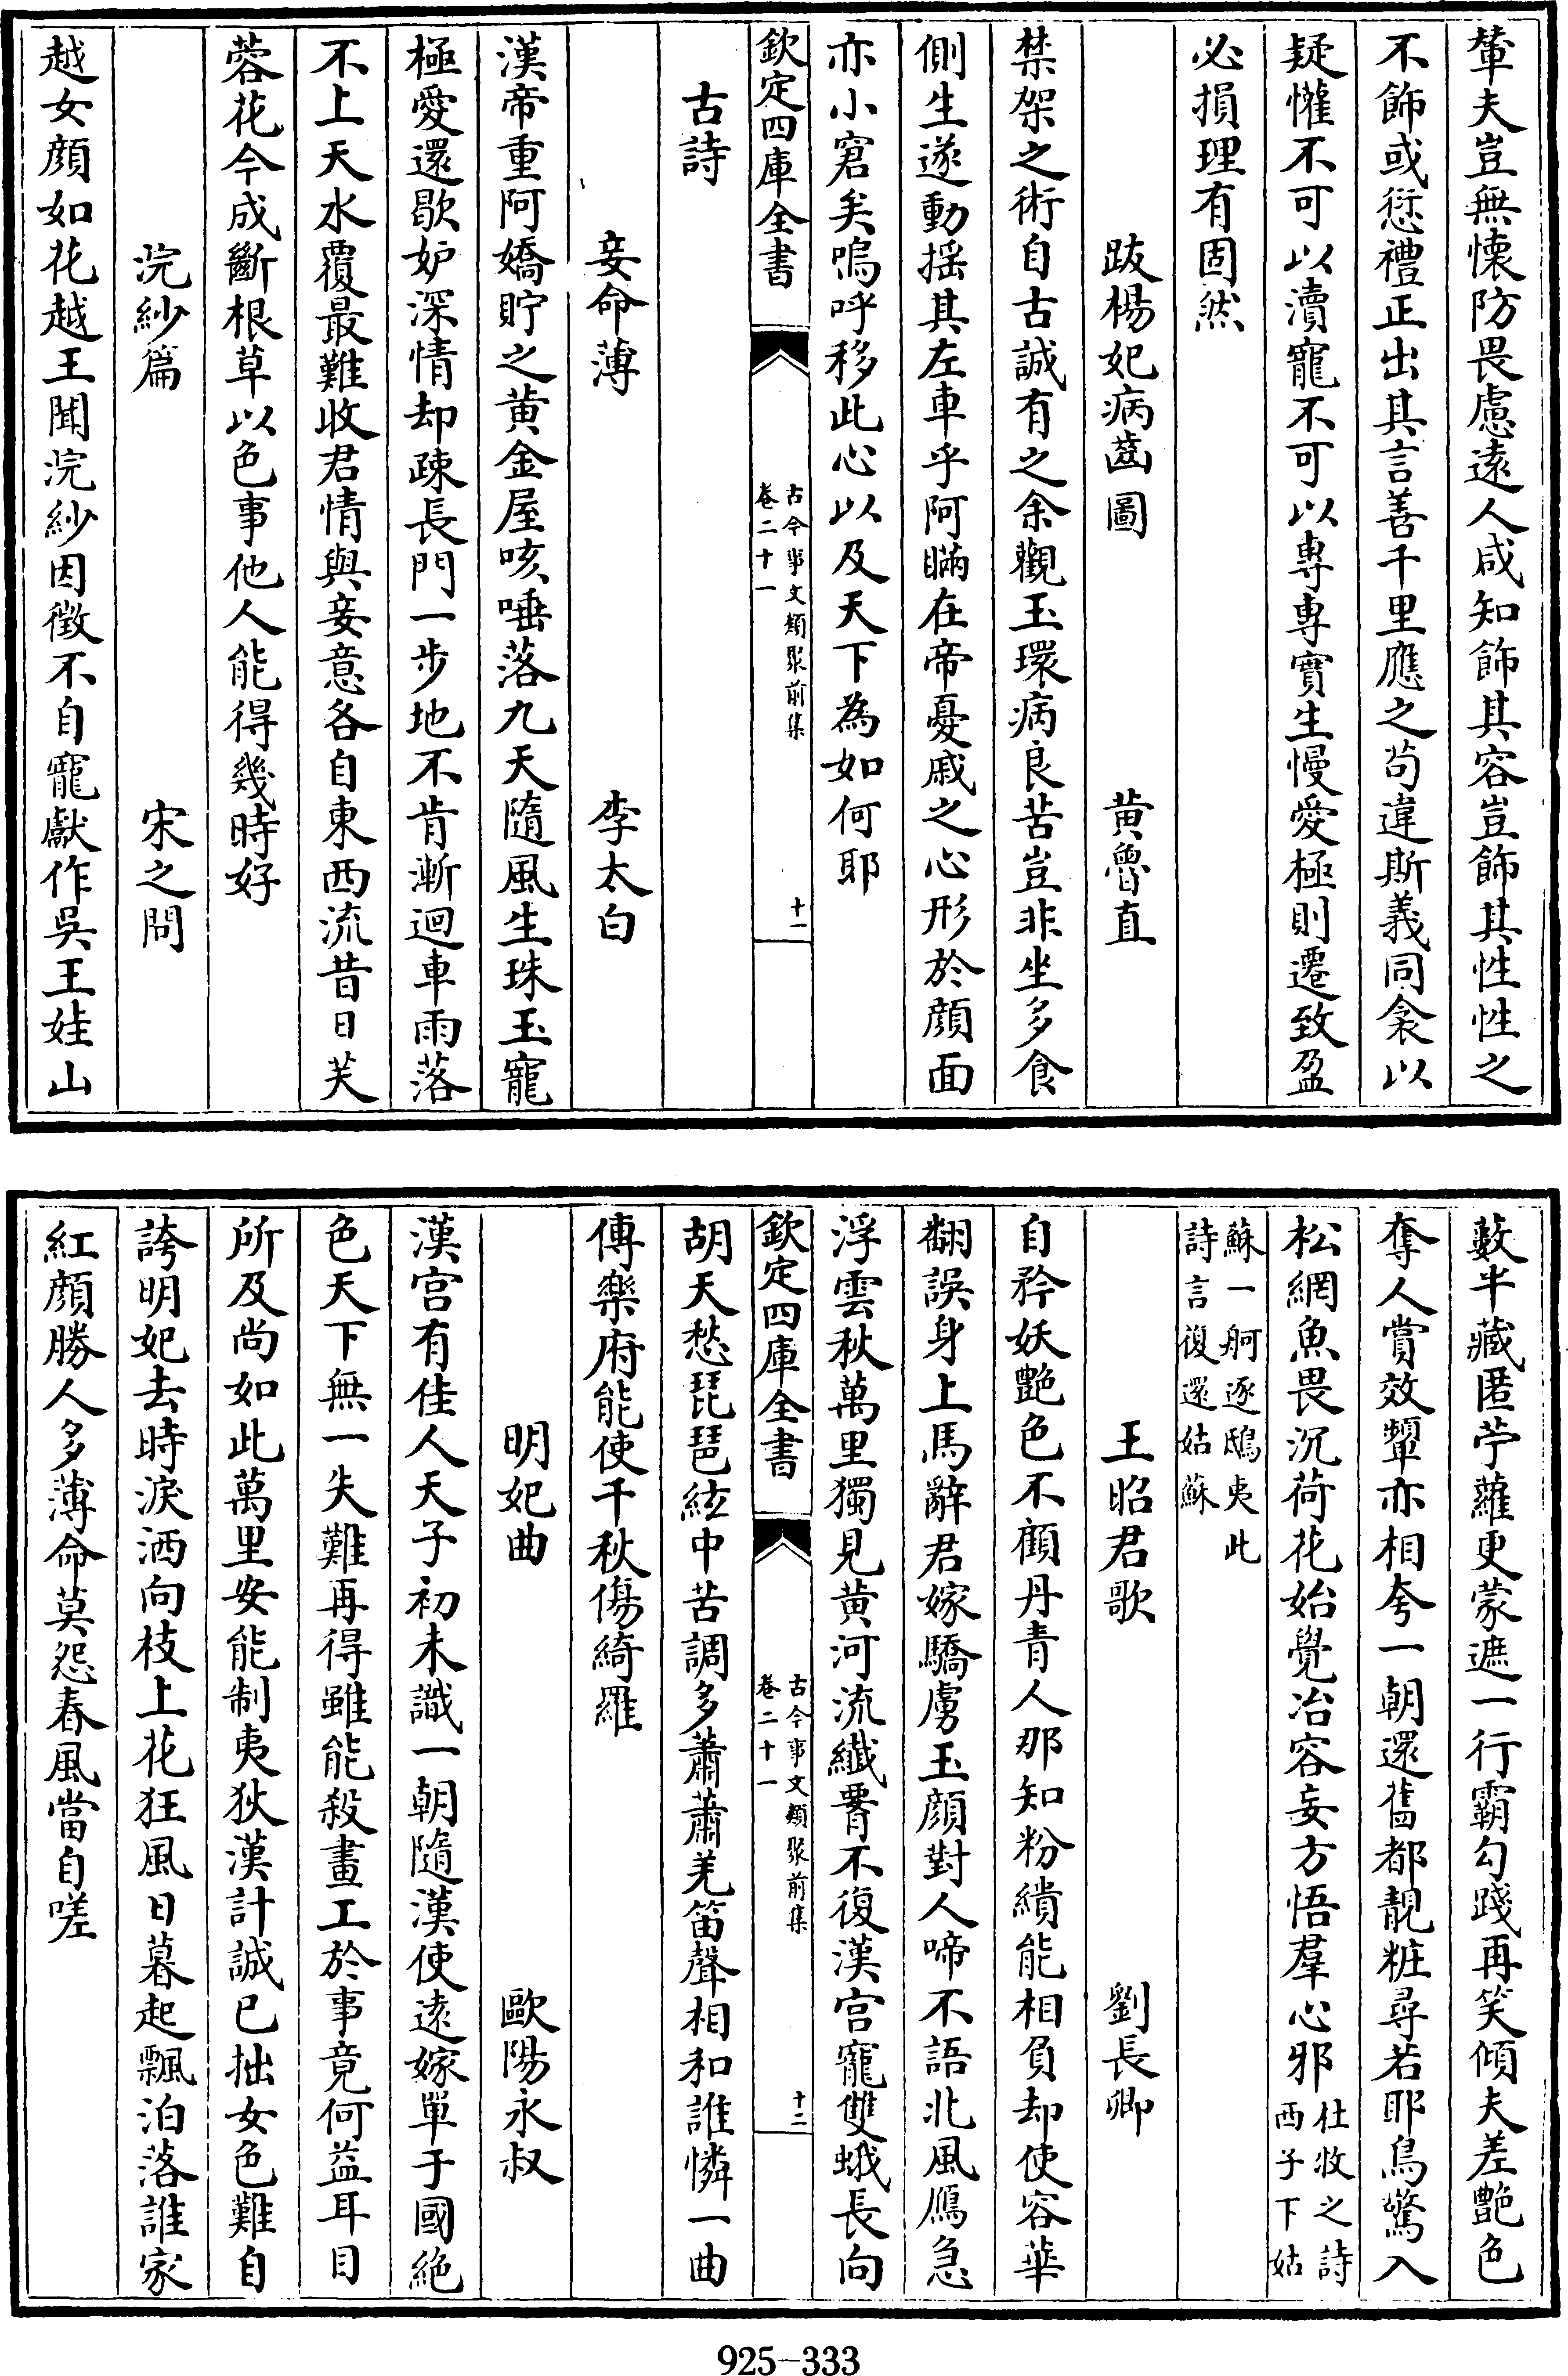 輦夫豈無懐防畏慮逺人咸知飾其容豈飾其性性之
不飾或愆禮正出其言善千里應之茍違斯義同衾以
疑懽不可以瀆寵不可以専専實生慢愛極則遷致盈
必損理有固然
跋楊妃病齒圖 黄魯直
禁架之術自古誠有之余觀玉環病良苦豈非坐多食
側生遂動揺其左車乎阿瞞在帝憂戚之心形於顔面
亦小窘矣嗚呼移此心以及天下為如何耶
欽定四庫全書 古今事文類聚前集 卷二十一 十一
古詩
妾命薄 李太白
漢帝重阿嬌貯之黄金屋咳唾落九天隨風生珠玉寵
極愛還歇妒深情却疎長門一步地不肯漸迴車雨落
不上天水覆最難收君情與妾意各自東西流昔日芙
蓉花今成斷根草以色事他人能得幾時好
浣紗篇 宋之問
越女顔如花越王聞浣紗因微不自寵獻作吳王娃山
藪半藏匿苧蘿更蒙遮一行霸勾踐再笑傾夫差艶色
奪人賞效顰亦相夸一朝還舊都靚粧尋若耶鳥驚入
松網魚畏沉荷花始覺冶容妄方悟羣心邪 杜牧之詩西子下姑
蘇一舸逐鴟夷此詩言復還姑蘇
王昭君歌 劉長卿
自矜妖艶色不顧丹青人那知粉繢能相負却使容華
翻誤身上馬辭君嫁驕虜玉顔對人啼不語北風鴈急
浮雲秋萬里獨見黄河流纖腰不復漢宫寵雙蛾長向
欽定四庫全書 古今事文類聚前集 卷二十一 十二
胡天愁琵琶絃中苦調多蕭蕭羌笛聲相和誰憐一曲
傳樂府能使千秋傷綺羅
明妃曲 歐陽永叔
漢宫有佳人天子初未識一朝隨漢使逺嫁單于國絶
色天下無一失難再得雖能殺畫工於事竟何益耳目
所及尚如此萬里安能制夷狄漢計誠已拙女色難自
誇明妃去時淚洒向枝上花狂風日暮起飄泊落誰家
紅顔勝人多薄命莫怨春風當自嗟
925-333